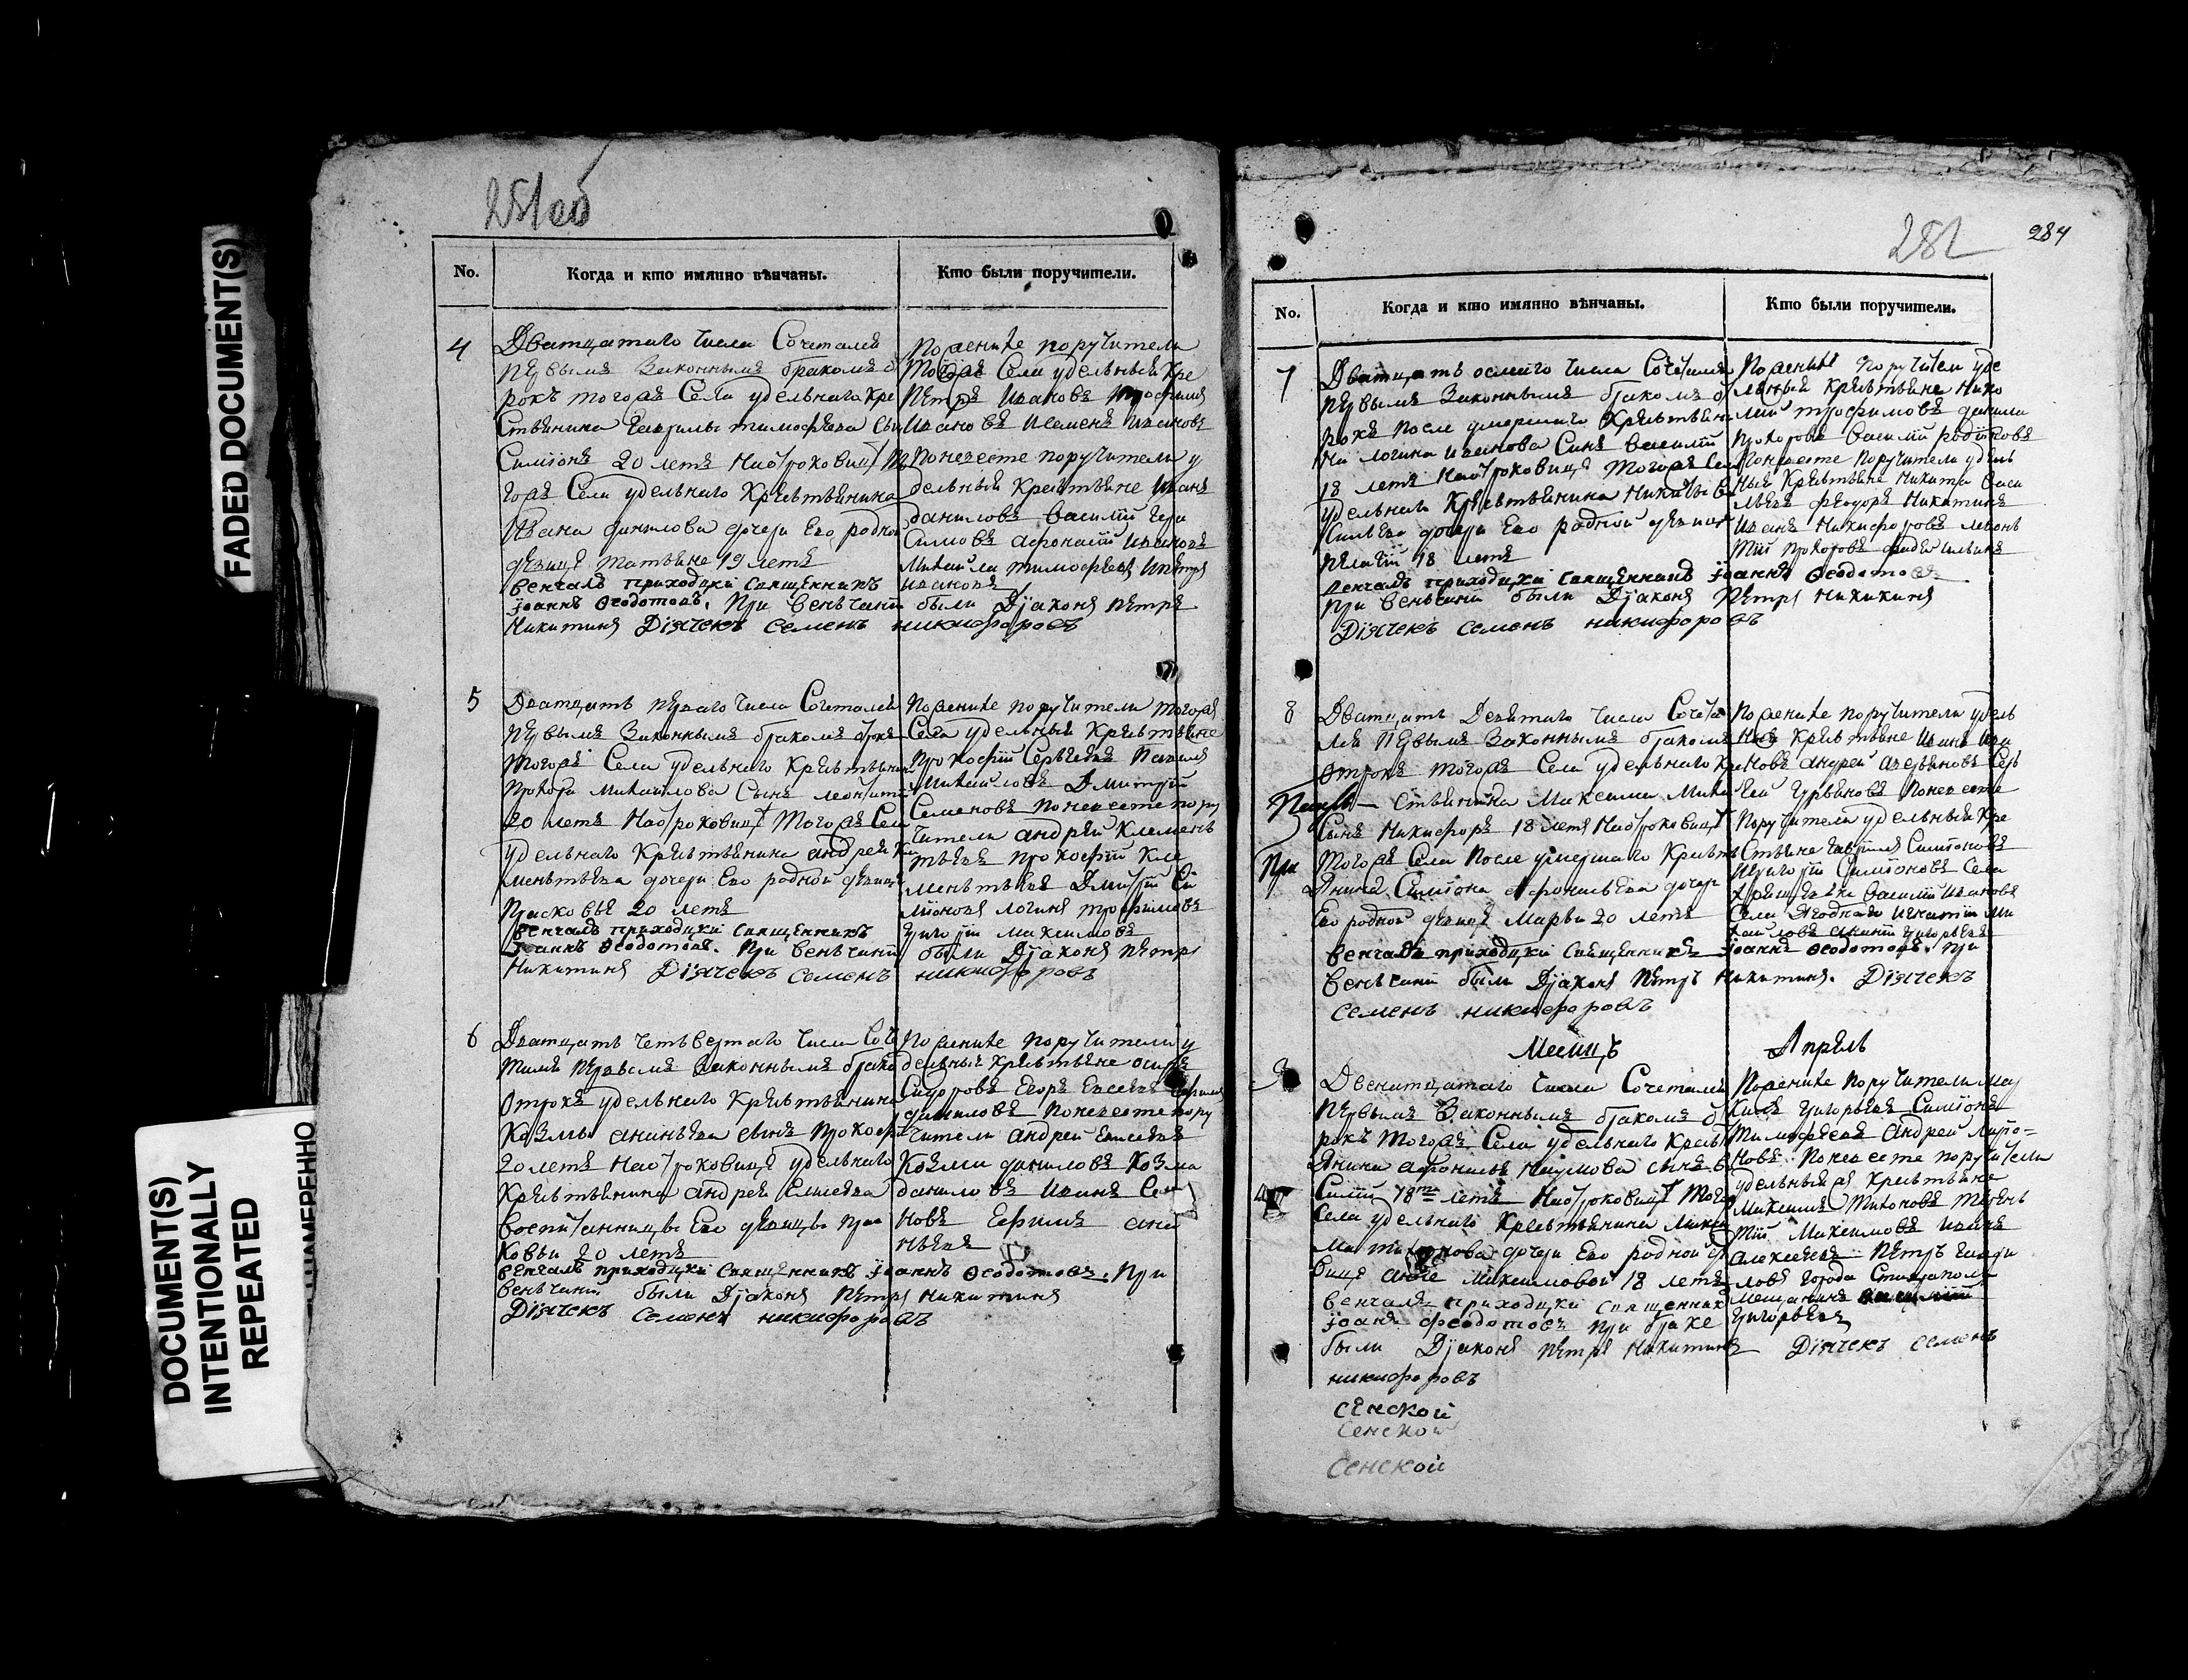 FADED DOCUMENT(S)
DOCUMENT(S)
INTENTIONALLY
REPEATED
НАМЕРЕННО
251об
No.
Когда и кто имянно вѣнчаны.
Кто были поручители.
4
Дватцатаго числа Сочетались
первымъ Законнымъ бракомъ о
рокъ тогожъ Села удельнаго Кре
стьянина Гаврилы тимофеева Сы
Симіонъ 20 летъ Наотроковицѣ То
гожъ Села удельнаго Крестьянина
Ивана данилова дочери Его родной
девице татьяне 19 летъ
венчалъ приходцкі священникъ
іоаннъ Ѳеодотовъ. При венчаніи были Діаконъ петръ
Никитинъ Діячекъ Семенъ никифоровъ
Поженихе поручители
Тогожъ Села удельный Кре
Петръ Ивановъ трофимъ
Ивановъ Исеменъ Ивановъ
Поневесте поручители у
дельный Крестьяне Иванъ
даниловъ Василій Гера
симовъ Афонасій Ивановъ
Михайла тимофеевъ Ипетръ
Ивановъ
5
Дватцать перваго числа Сочетались
первымъ Законнымъ бракомъ отрокъ
Тогожъ Села удельнаго Крестьянина
прохора михайлова Сынъ леонтій
20 летъ Наотроковицѣ Тогожъ Села
удельнаго Крестьянина андрея Кле
ментьева дочери Его родной девице
Прасковье 20 летъ
венчалъ приходцкі священникъ
іоаннъ Ѳеодотовъ. При венчаніи были Діаконъ петръ
Никитинъ Діячекъ Семенъ никифоровъ
Поженихе поручители тогожъ
Села удельный Крестьяне
Прокофій Сергѣевъ Павелъ
михайловъ Дмитрій
Семеновъ поневесте пору
чители андрей Клемень
тьевъ прокофій Кле
ментьевъ Дмитрій Си
міоновъ логинъ трофимовъ
григорій максимовъ
6
Дватцать четвертаго числа Соче
тались первымъ законнымъ бракомъ
Отрокъ удельнаго Крестьянина
Козмы ананьева сынъ прокофій
20 летъ Наотроковицѣ удельнаго
Крестьянина андрея Елисеева
воспитанницы Его девицы прас
ковьи 20 летъ
венчалъ приходцкі священникъ іоаннъ Ѳеодотовъ. При
венчаніи были Діаконъ петръ никитинъ
Діячекъ Семенъ никифоровъ
Поженихе поручители у
дельный Крестьяне осипъ
Сидоровъ Егоръ Евсеевъ
даниловъ поневесте пору
чители андрей Елисеевъ
Козма даниловъ Козма
даниловъ Иванъ Семе
новъ Ефимъ ана
ньевъ
282
284
No.
Когда и кто имянно вѣнчаны.
Кто были поручители.
7
Дватцать осмаго числа Сочетались
первымъ Законнымъ бракомъ о
рокъ после умершаго Крестьяни
на логина Иванова Сынъ василій
18 летъ Наотроковицѣ Тогожъ Села
удельнаго Крестьянина Никиты Ва
сильева дочери Его родной девице
Пелагіи 18 летъ
венчалъ приходцкі священникъ іоаннъ Ѳеодотовъ
при венчаніи были Діаконъ петръ никитинъ
Діячекъ Семенъ никифоровъ
Поженихе поручители уде
льный Крестьяне Нико
лай трофимовъ данила
прохоровъ василій родіоновъ
Поневесте поручители удель
ный Крестьяне никита васи
льевъ феодоръ Никитинъ
Иванъ Никифоровъ леонъ
тій прохоровъ
8
Дватцать Девятаго числа Сочета
лись первымъ Законнымъ бракомъ
отрокъ тогожъ Села удельнаго Кре
стьянина Максима Миха
Сынъ Никифоръ 18 летъ Наотроковицѣ
Тогожъ Села после умершаго Кресть
янина Симіона Афонасьева дочери
Его родной девице Марьи 20 летъ
венчалъ приходцкі священникъ іоаннъ Ѳеодотовъ. При
венчаніи были Діаконъ петръ никитинъ. Діячекъ
Семенъ никифоровъ
При
Поженихе поручители удель
ный Крестьяне Иванъ Ива
новъ андрей Сер
гей Гурьяновъ поневесте
поручители удельный Кре
стьяне Гаврила Симіоновъ
Григорій Симіоновъ Села
василій Ивановъ
Села Ягоднаго Игнатій Ми
хайловъ григорьевъ
Месяцъ Апрель
9
Двенатцатаго числа Сочетались
первымъ Законнымъ бракомъ от
рокъ Тогожъ Села удельнаго Кресть
янина афонасья Наумова сынъ ва
силій 18 летъ Наотроковицѣ Тогожъ
Села удельнаго Крестьянина
дочери Его родной де
вице анне максимовой 18 летъ
венчалъ приходцкі священникъ
іоаннъ феодотовъ при браке
были Діаконъ петръ Никитинъ Діячекъ Семенъ
никифоровъ
Поженихе поручители Мар
григорьевъ Симіонъ
Тимофеевъ Андрей миро=
новъ поневесте поручители
удельный Крестьяне
Максимъ Тихоновъ терень
тій Максимовъ Иванъ
алексеевъ петръ
города Ставрополя
мещанинъ
григорьевъ
сенской
сенской
сенской